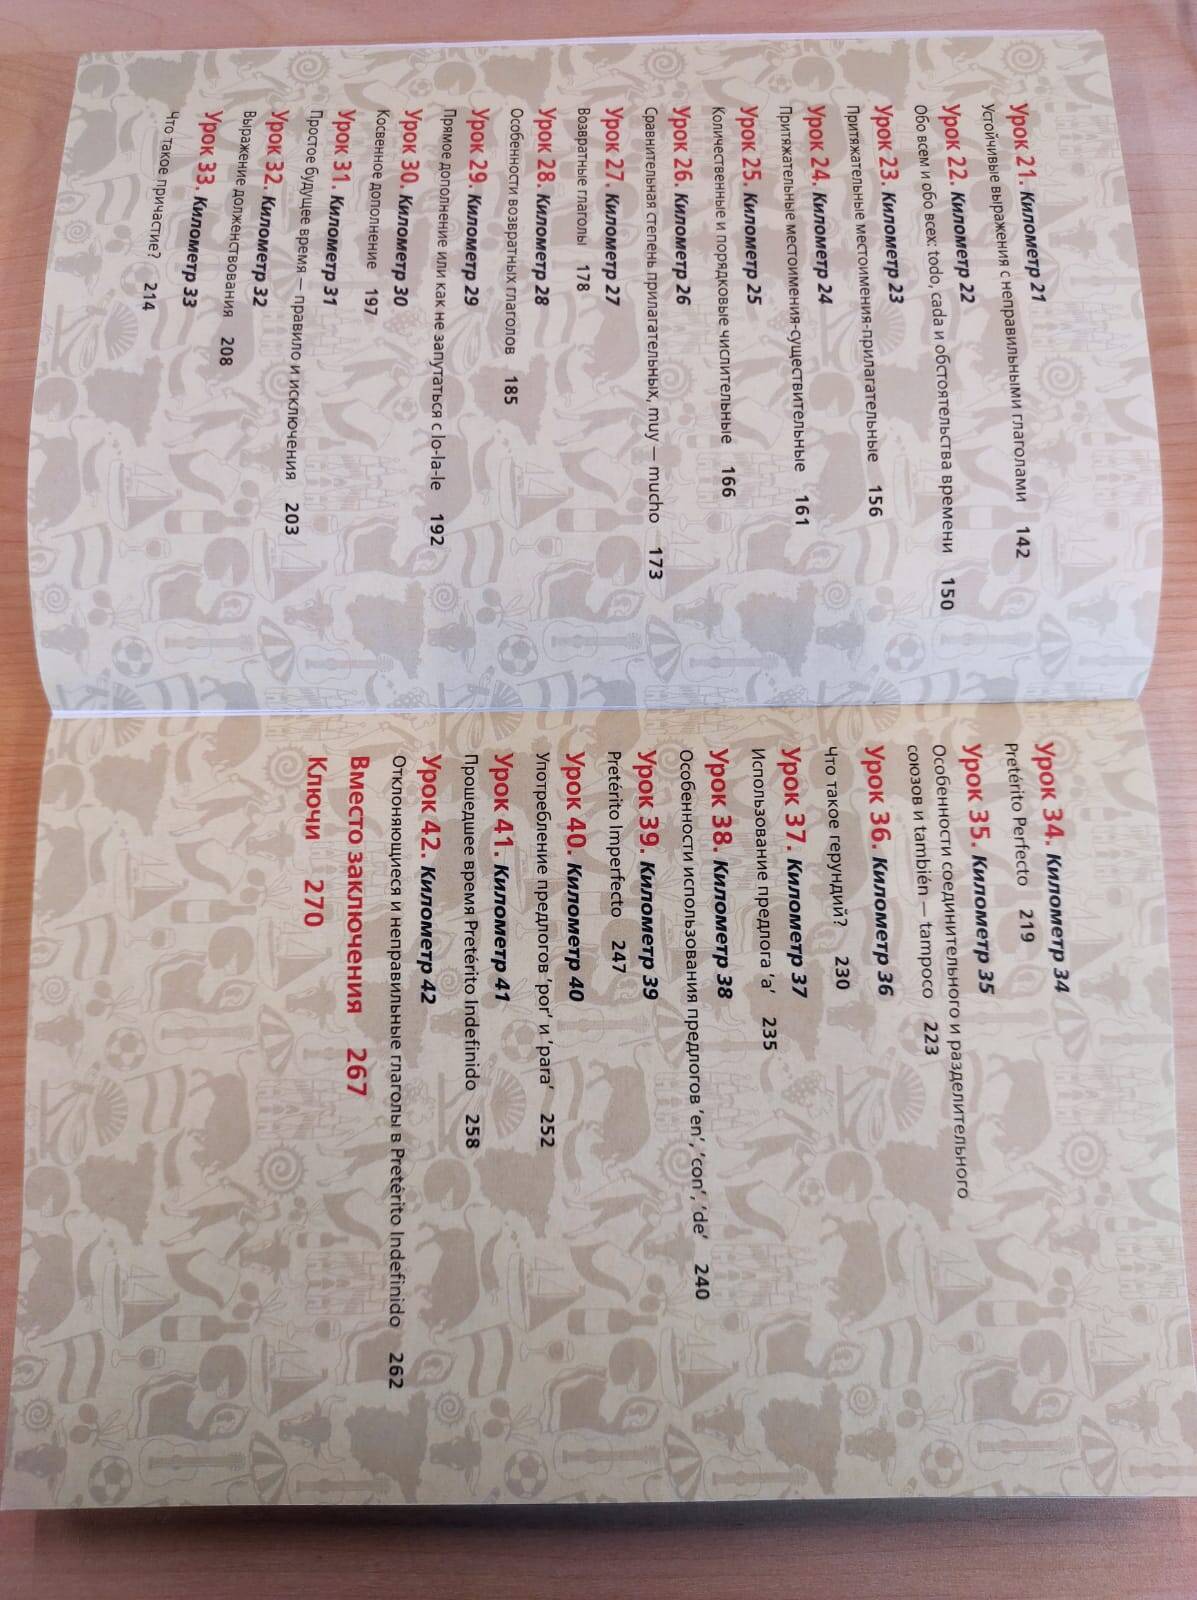 Урок 21. Километр 21
Устойчивые выражения с неправильными глаголами 142
Урок 22. Километр 22
Обо всем и обо всех: todo, cada и обстоятельства времени 150
Урок 23. Километр 23
Притяжательные местоимения-прилагательные 156
Урок 24. Километр 24
Притяжательные местоимения-существительные 161
Урок 25. Километр 25
Количественные и порядковые числительные 166
Урок 26. Километр 26
Сравнительная степень прилагательных, muy — mucho 173
Урок 27. Километр 27
Возвратные глаголы 178
Урок 28. Километр 28
Особенности возвратных глаголов 185
Урок 29. Километр 29
Прямое дополнение или как не запутаться с lo-la-le 192
Урок 30. Километр 30
Косвенное дополнение 197
Урок 31. Километр 31
Простое будущее время — правило и исключения 203
Урок 32. Километр 32
Выражение долженствования 208
Урок 33. Километр 33
Что такое причастие? 214
Урок 34. Километр 34
Pretérito Perfecto 219
Урок 35. Километр 35
Особенности соединительного и разделительного
союзов и también — tampoco 223
Урок 36. Километр 36
Что такое герундий? 230
Урок 37. Километр 37
Использование предлога ‘a’ 235
Урок 38. Километр 38
Особенности использования предлогов ‘en’, ‘con’, ‘de’ 240
Урок 39. Километр 39
Pretérito Imperfecto 247
Урок 40. Километр 40
Употребление предлогов ‘por’ и ‘para’ 252
Урок 41. Километр 41
Прошедшее время Pretérito Indefinido 258
Урок 42. Километр 42
Отклоняющиеся и неправильные глаголы в Pretérito Indefinido 262
Вместо заключения 267
Ключи 270